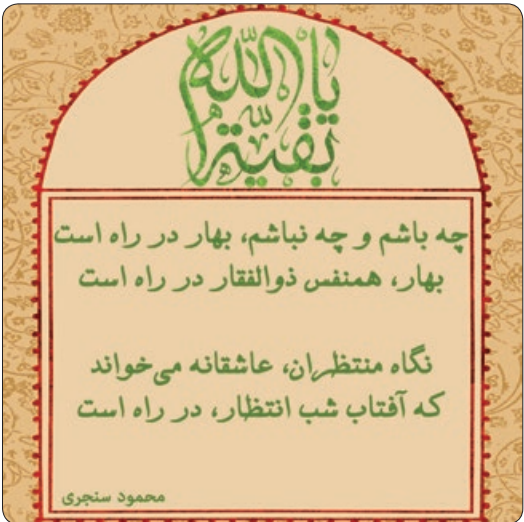 یا بقیة الله
چه باشم و چه نباشم، بهار در راه است
بهار، همنفس ذوالفقار در راه است
نگاه منتظران، عاشقانه می‌خواند
که آفتاب شب انتظار، در راه است
محمود سنجری